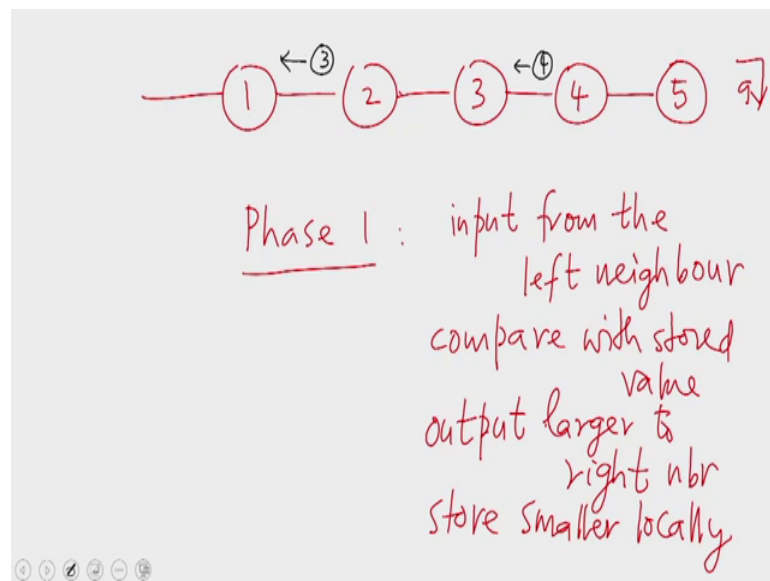 ←③ ←④
1 2 3 4 5
Phase 1 : input from the
left neighbour
compare with stored
value
output larger to
right nbr
store smaller locally